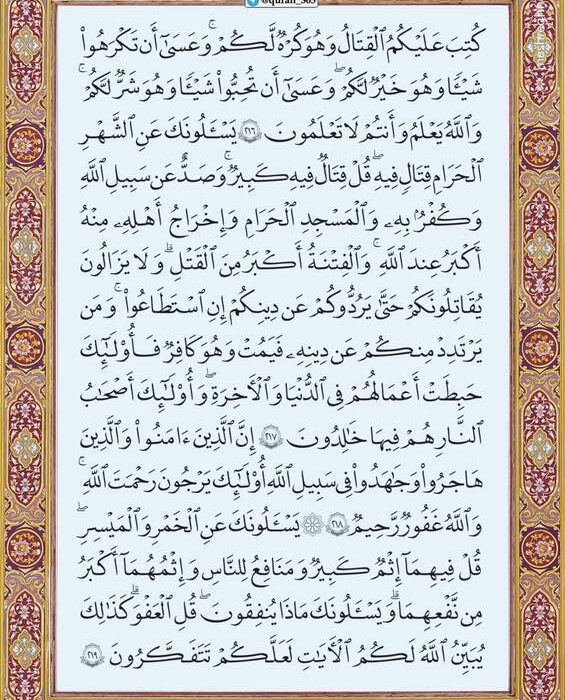 @quran_365
كُتِبَ عَلَيْكُمُ ٱلْقِتَالُ وَهُوَ كُرْهٌ لَّكُمْ ۖ وَعَسَىٰٓ أَن تَكْرَهُوا۟
شَيْـًٔا وَهُوَ خَيْرٌ لَّكُمْ ۖ وَعَسَىٰٓ أَن تُحِبُّوا۟ شَيْـًٔا وَهُوَ شَرٌّ لَّكُمْ ۗ
وَٱللَّهُ يَعْلَمُ وَأَنتُمْ لَا تَعْلَمُونَ ٢١٦ يَسْـَٔلُونَكَ عَنِ ٱلشَّهْرِ
ٱلْحَرَامِ قِتَالٍ فِيهِ ۖ قُلْ قِتَالٌ فِيهِ كَبِيرٌ ۖ وَصَدٌّ عَن سَبِيلِ ٱللَّهِ
وَكُفْرٌۢ بِهِۦ وَٱلْمَسْجِدِ ٱلْحَرَامِ وَإِخْرَاجُ أَهْلِهِۦ مِنْهُ
أَكْبَرُ عِندَ ٱللَّهِ ۚ وَٱلْفِتْنَةُ أَكْبَرُ مِنَ ٱلْقَتْلِ ۗ وَلَا يَزَالُونَ
يُقَاتِلُونَكُمْ حَتَّىٰ يَرُدُّوكُمْ عَن دِينِكُمْ إِنِ ٱسْتَطَاعُوا۟ ۚ وَمَن
يَرْتَدِدْ مِنكُمْ عَن دِينِهِۦ فَيَمُتْ وَهُوَ كَافِرٌ فَأُو۟لَـٰٓئِكَ
حَبِطَتْ أَعْمَالُهُمْ فِى ٱلدُّنْيَا وَٱلْـَٔاخِرَةِ ۖ وَأُو۟لَـٰٓئِكَ أَصْحَابُ
ٱلنَّارِ هُمْ فِيهَا خَالِدُونَ ٢١٧ إِنَّ ٱلَّذِينَ ءَامَنُوا۟ وَٱلَّذِينَ
هَاجَرُوا۟ وَجَاهَدُوا۟ فِى سَبِيلِ ٱللَّهِ أُو۟لَـٰٓئِكَ يَرْجُونَ رَحْمَتَ ٱللَّهِ ۚ
وَٱللَّهُ غَفُورٌ رَّحِيمٌ ٢١٨ ۞ يَسْـَٔلُونَكَ عَنِ ٱلْخَمْرِ وَٱلْمَيْسِرِ ۖ
قُلْ فِيهِمَآ إِثْمٌ كَبِيرٌ وَمَنَافِعُ لِلنَّاسِ وَإِثْمُهُمَآ أَكْبَرُ
مِن نَّفْعِهِمَا ۗ وَيَسْـَٔلُونَكَ مَاذَا يُنفِقُونَ ۖ قُلِ ٱلْعَفْوَ ۗ كَذَٰلِكَ
يُبَيِّنُ ٱللَّهُ لَكُمُ ٱلْـَٔايَاتِ لَعَلَّكُمْ تَتَفَكَّرُونَ ٢١٩